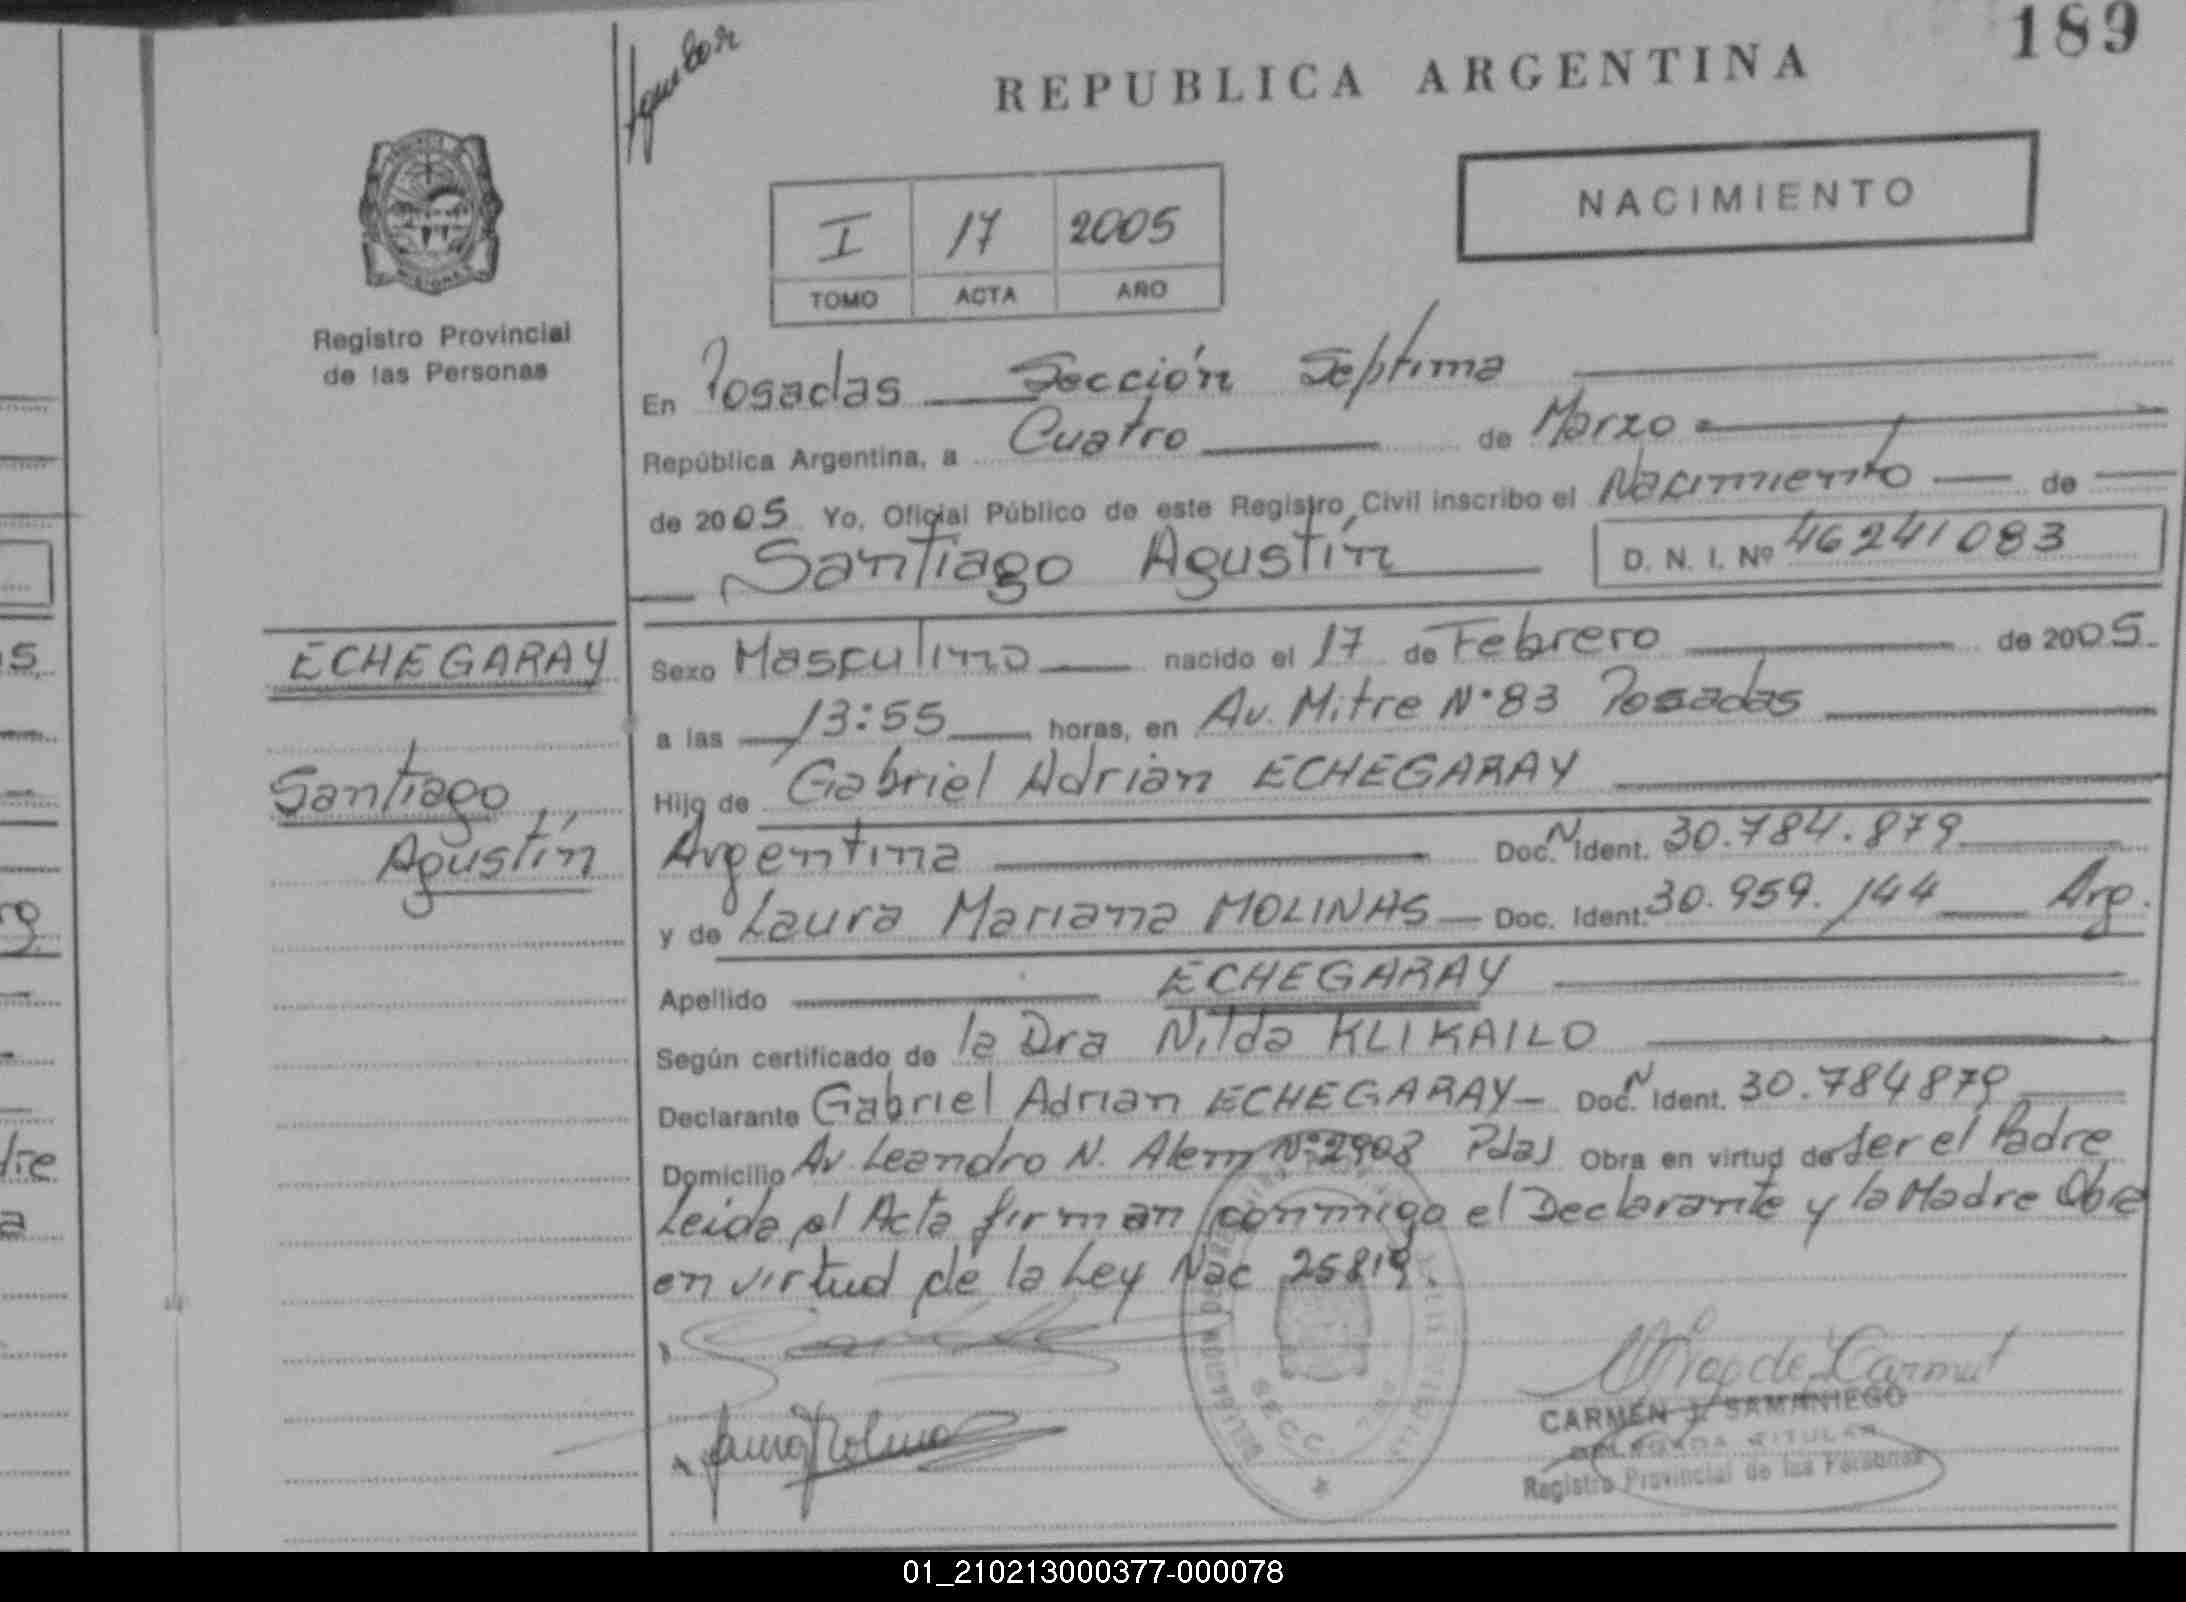 189
REPUBLICA ARGENTINA
NACIMIENTO
I 17 2005
TOMO ACTA AÑO
Registro Provincial
de las Personas
En Posadas Sección Septima
República Argentina, a Cuatro de Marzo
de 2005 Yo, Oficial Público de este Registro Civil inscribo el Nacimiento de
Santiago Agustín D. N. I. Nº 46241083
ECHEGARAY
Santiago
Agustín
Sexo Masculino nacido el 17 de Febrero de 2005.
a las 13:55 horas, en Av. Mitre N° 83 Posadas
Hijo de Gabriel Adrian ECHEGARAY
Argentina Doc. N. Ident. 30.784.879
y de Laura Mariana MOLINAS Doc. Ident. 30.959.144 Arg.
Apellido ECHEGARAY
Según certificado de la Dra Nilda KLIKAILO
Declarante Gabriel Adrian ECHEGARAY Doc. N. Ident. 30.784879
Domicilio Av. Leandro N. Alem N° 2908 Pdas Obra en virtud de ser el Padre
Leida el Acta firman conmigo el Declarante y la Madre Obra
en virtud de la Ley Nac 25819.
SECC.
CARMEN J. SAMANIEGO
DELEGADA TITULAR
Registro Provincial de las Personas
01_210213000377-000078